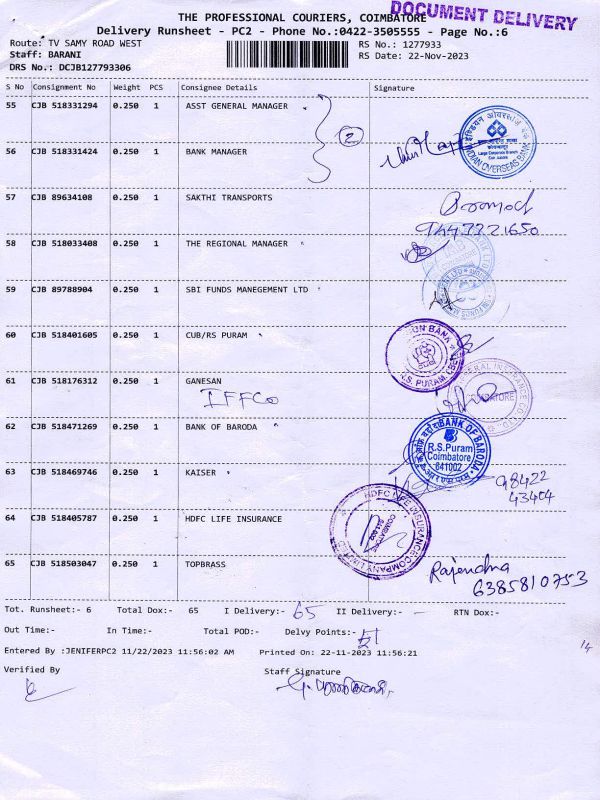 DOCUMENT DELIVERY
THE PROFESSIONAL COURIERS, COIMBATORE
Delivery Runsheet - PC2 - Phone No.:0422-3505555 - Page No.:6
Route: TV SAMY ROAD WEST
RS No.: 1277933
Staff: BARANI
RS Date: 22-Nov-2023
DRS No.: DCJB127793306
S No Consignment No Weight PCS Consignee Details Signature
55 CJB 518331294 0.250 1 ASST GENERAL MANAGER
2
56 CJB 518331424 0.250 1 BANK MANAGER
INDIAN OVERSEAS BANK
57 CJB 89634108 0.250 1 SAKTHI TRANSPORTS
9447721650
58 CJB 518033408 0.250 1 THE REGIONAL MANAGER
59 CJB 89788904 0.250 1 SBI FUNDS MANEGEMENT LTD
60 CJB 518401605 0.250 1 CUB/RS PURAM
UN BANK
R.S. PURAM
61 CJB 518176312 0.250 1 GANESAN
IFFCO
62 CJB 518471269 0.250 1 BANK OF BARODA
BANK OF BARODA
R.S.Puram
Coimbatore
641002
63 CJB 518469746 0.250 1 KAISER
98422
43404
64 CJB 518405787 0.250 1 HDFC LIFE INSURANCE
HDFC LIFE INSURANCE COMPANY LIMITED
COIMBATORE
65 CJB 518503047 0.250 1 TOPBRASS
Rajendra
6385810753
Tot. Runsheet:- 6 Total Dox:- 65 I Delivery:- 65 II Delivery:- - RTN Dox:-
Out Time:- In Time:- Total POD:- Delvy Points:- 51
14
Entered By :JENIFERPC2 11/22/2023 11:56:02 AM Printed On: 22-11-2023 11:56:21
Verified By Staff Signature